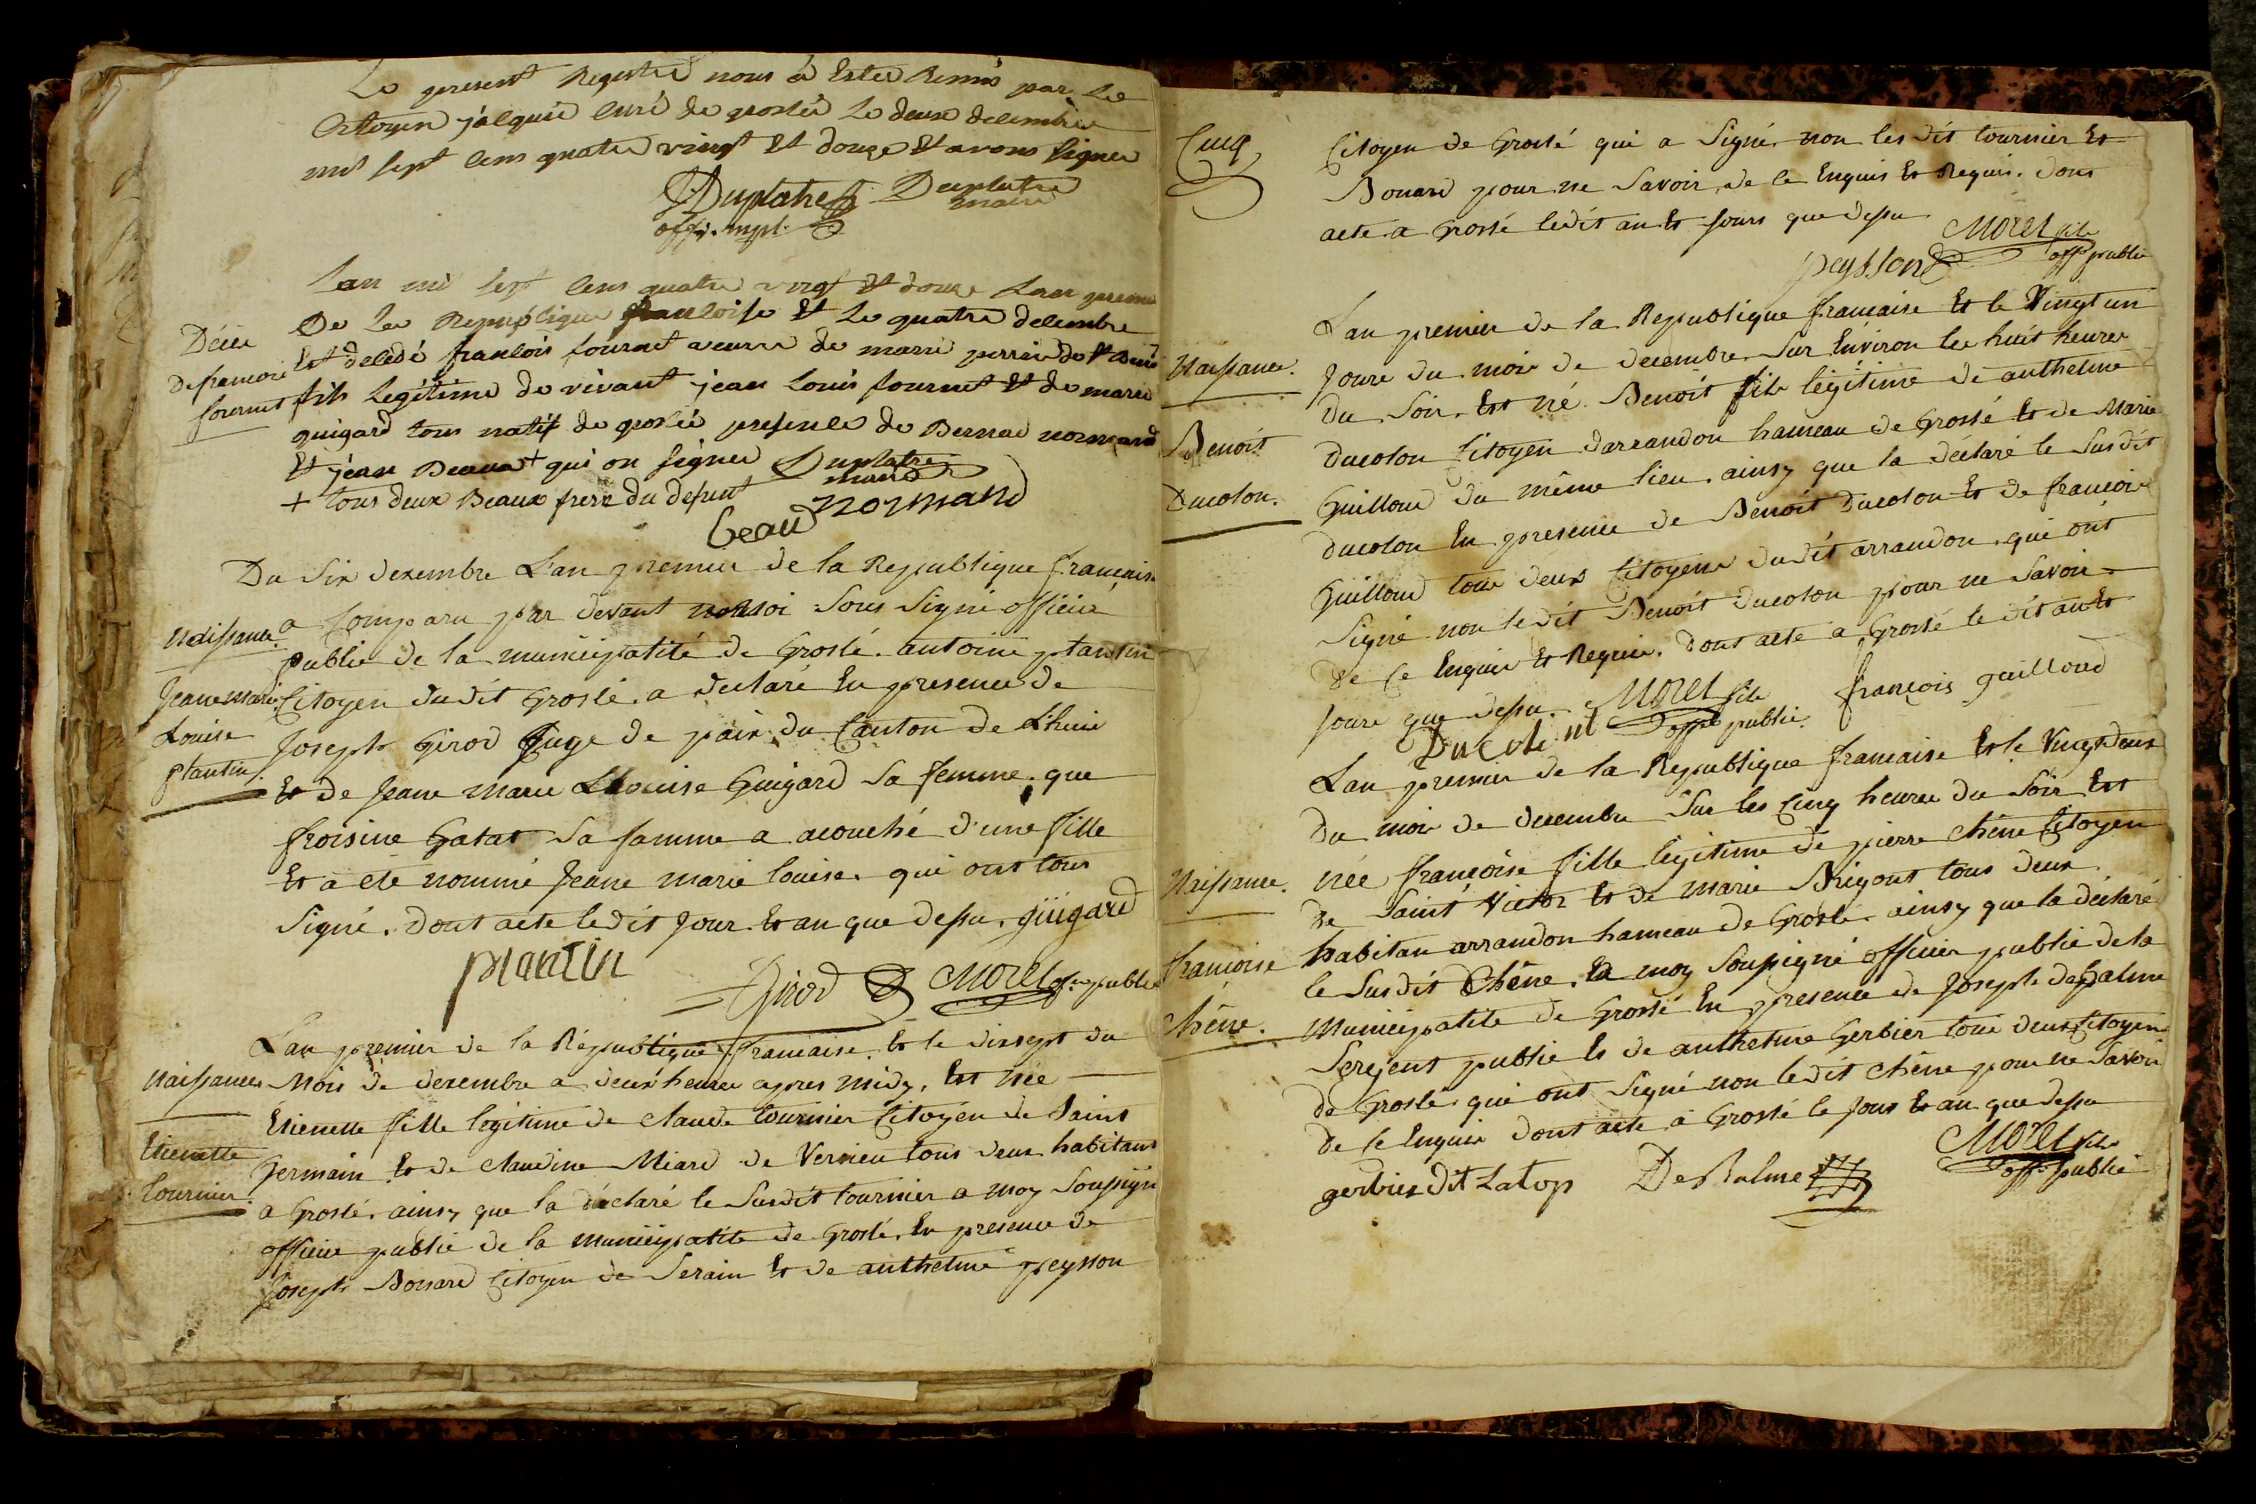 Le present Registre nous à Estee Remis par Le
Citoyen jalquie curé de groslée Le deux decembre
mil sept cens quatre vingt Et douze Et avons signer
Duplatre Duplatre
offi. mpl. maire
Lan mil sept cens quatre vingt Et douze Lan premie
De La Republique francoise Et Le quatre decembre
Décée
Est decédé francois fournet
defrancoi
fournet
fils Legitime de vivant jean Louis fournet Et de marie
guigard tous natif de groslée presence de Bernad normand
Et jean Beaux + qui on signer Duplatre
maire
+ tous deux Beaux frere du defunt
beau normand
Du Six decembre L'an premier de la Republique francaise
a Comparu par devant moi Sous Signé officié
Naissance.
public de la municipatité de Groslé. antoine plantin
Jeane marie
Citoyen dudit Groslé. a declaré En presence de
Louise
Joseph Girod Juge de paix du Canton de Lhuis
plantin.
Et de Jeane Marie Louise Guigard Sa femme. que
froisine Gatat Sa famme a acouché d'une fille
Et a eté nommé Jeane marie louise. qui ont tous
Signé. dont acte ledit Jour. Et an que dessu. guigard
plantin Girod Morel off. public
Lan premier de la Republique francaise. Et le dixsept du
Naissance
Mois de decembre a deux heures apres midy. Est née
Etienette fille legitime de Claude tournier Citoyen de Saint
Etienette
Germain Et de Claudine Miard de Verieu tous deux habitant
tournier.
a Groslé. ainsy que la declaré le Susdit tournier a moy Soussigné
officié public de la municipatité de Groslé. En presence de
Joseph Bonard Citoyen de Serain Et de anthelme peysson
Cinq
Citoyen de Groslé qui a Signé non les dit tournier Et
Bonard pour ne Savoir, de ce Enquis Et Requis. dont
acte a Groslé ledit an Et Jours que dessu
peysson Morel fils
off. public
Lan premier de la Republique francaise Et le Vingt un
Naissance.
Jours du mois de decembre. Sur Environ les huit heures
du Soir. Est né Benoit fils légitime de anthelme
Benoit
ducolon Citoyen darrandon hameau de Groslé Et de Marie
Ducolon.
Guilloud du même lieu. ainsy que la déclaré le Susdit
ducolon En presence de Benoit Ducolon Et de francois
Guilloud tous deux Citoyens dudit arrandon. qui ont
Signé non ledit Benoit ducolon pour ne Savoir
de Ce Enquis Et Requis. dont acte a Groslé ledit an Et
Jours que dessu. Morel fils françois guilloud
Ducolont offi. public.
Lan premier de la Republique francaise Et le Vingtdeux
du mois de decembre Sur les Cinq heures du Soir Est
Naissance.
née françoise fille legitime de pierre Chêne Citoyen
de Saint Victor Et de marie Brigont tous deux
francoise
habitan arrandon hameau de Groslé. ainsy que la déclaré
Chêne.
le Susdit Chêne. a moy Soussigné officier public de la
Municipatité de Groslé En presence de Joseph deBalme
Serejent public Et de anthelme Gerbier tous deux Citoyen
de Groslé. qui ont Signé non ledit Chêne pour ne Savoir
de Ce Enquis dont acte a Groslé le Jour Et an que dessu
gerbier dit Latop DeBalme Morel fils
off. public